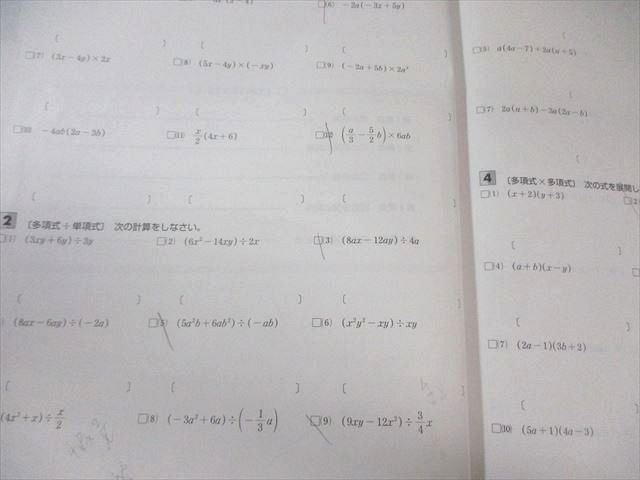 □(6) −2a(−3x+5y)
□(7) (3x−4y)×2x
□(8) (5x−4y)×(−xy)
□(9) (−2a+5b)×2a²
□(10) −4ab(2a−3b)
□(11) x/2(4x+6)
□(12) (a/3−5/2b)×6ab
2 〔多項式÷単項式〕 次の計算をしなさい。
□(1) (3xy+6y)÷3y
□(2) (6x²−14xy)÷2x
□(3) (8ax−12ay)÷4a
(8ax−6ay)÷(−2a)
□(5) (5a²b+6ab²)÷(−ab)
□(6) (x²y²−xy)÷xy
(4x²+x)÷x/2
□(8) (−3a²+6a)÷(−1/3a)
□(9) (9xy−12x²)÷3/4x
a(4a−7)+2a(a+5)
□(7) 2a(a+b)−3a(2a−b)
4 〔多項式×多項式〕 次の式を展開し
□(1) (x+2)(y+3)
□(4) (a+b)(x−y)
□(7) (2a−1)(3b+2)
□(10) (5a+1)(4a−3)